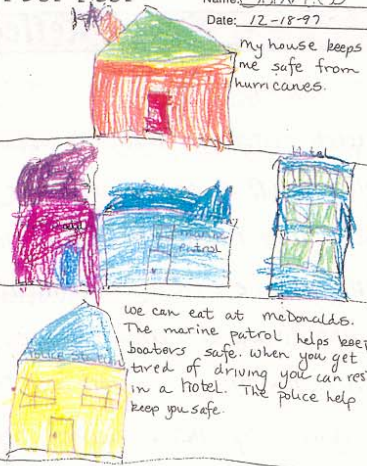 Name:
Date: 12-18-97
my house keeps
me safe from
hurricanes.
Hotel
patrol
POLICE STATION
we can eat at mcDonalds.
The marine patrol helps keep
boaters safe. when you get
tired of driving you can rest
in a hotel. The police help
keep you safe.